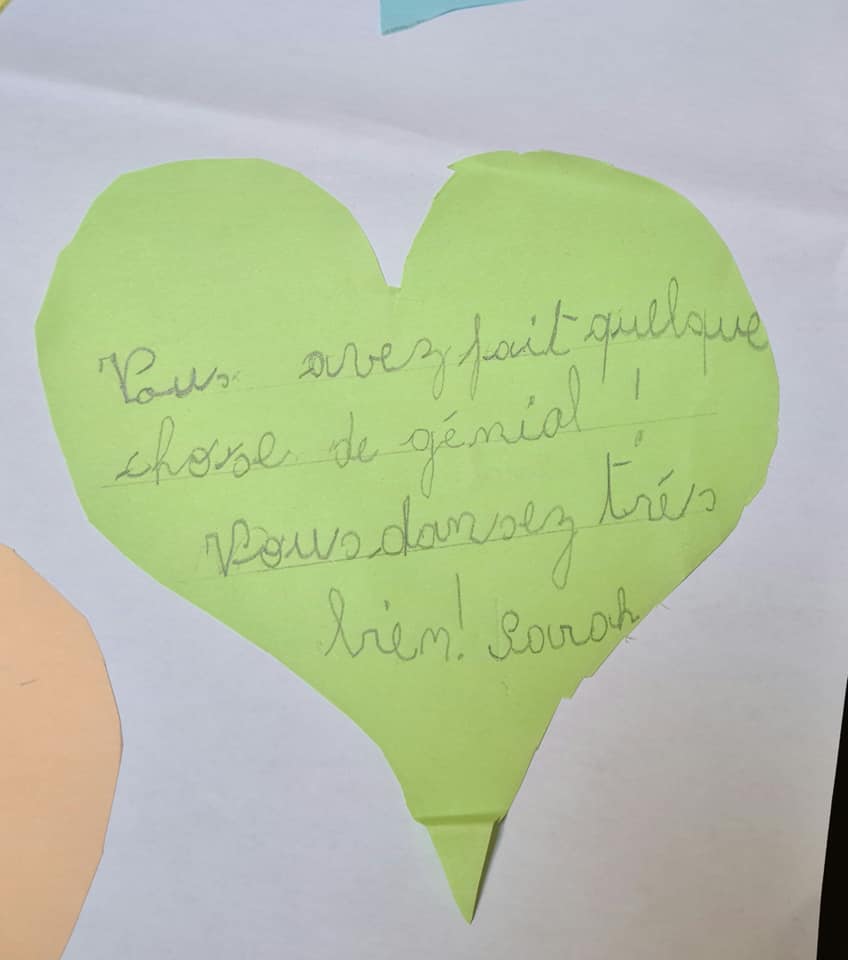 Vous avez fait quelque
chose de génial !
Vous dansez trés
bien! Sarah